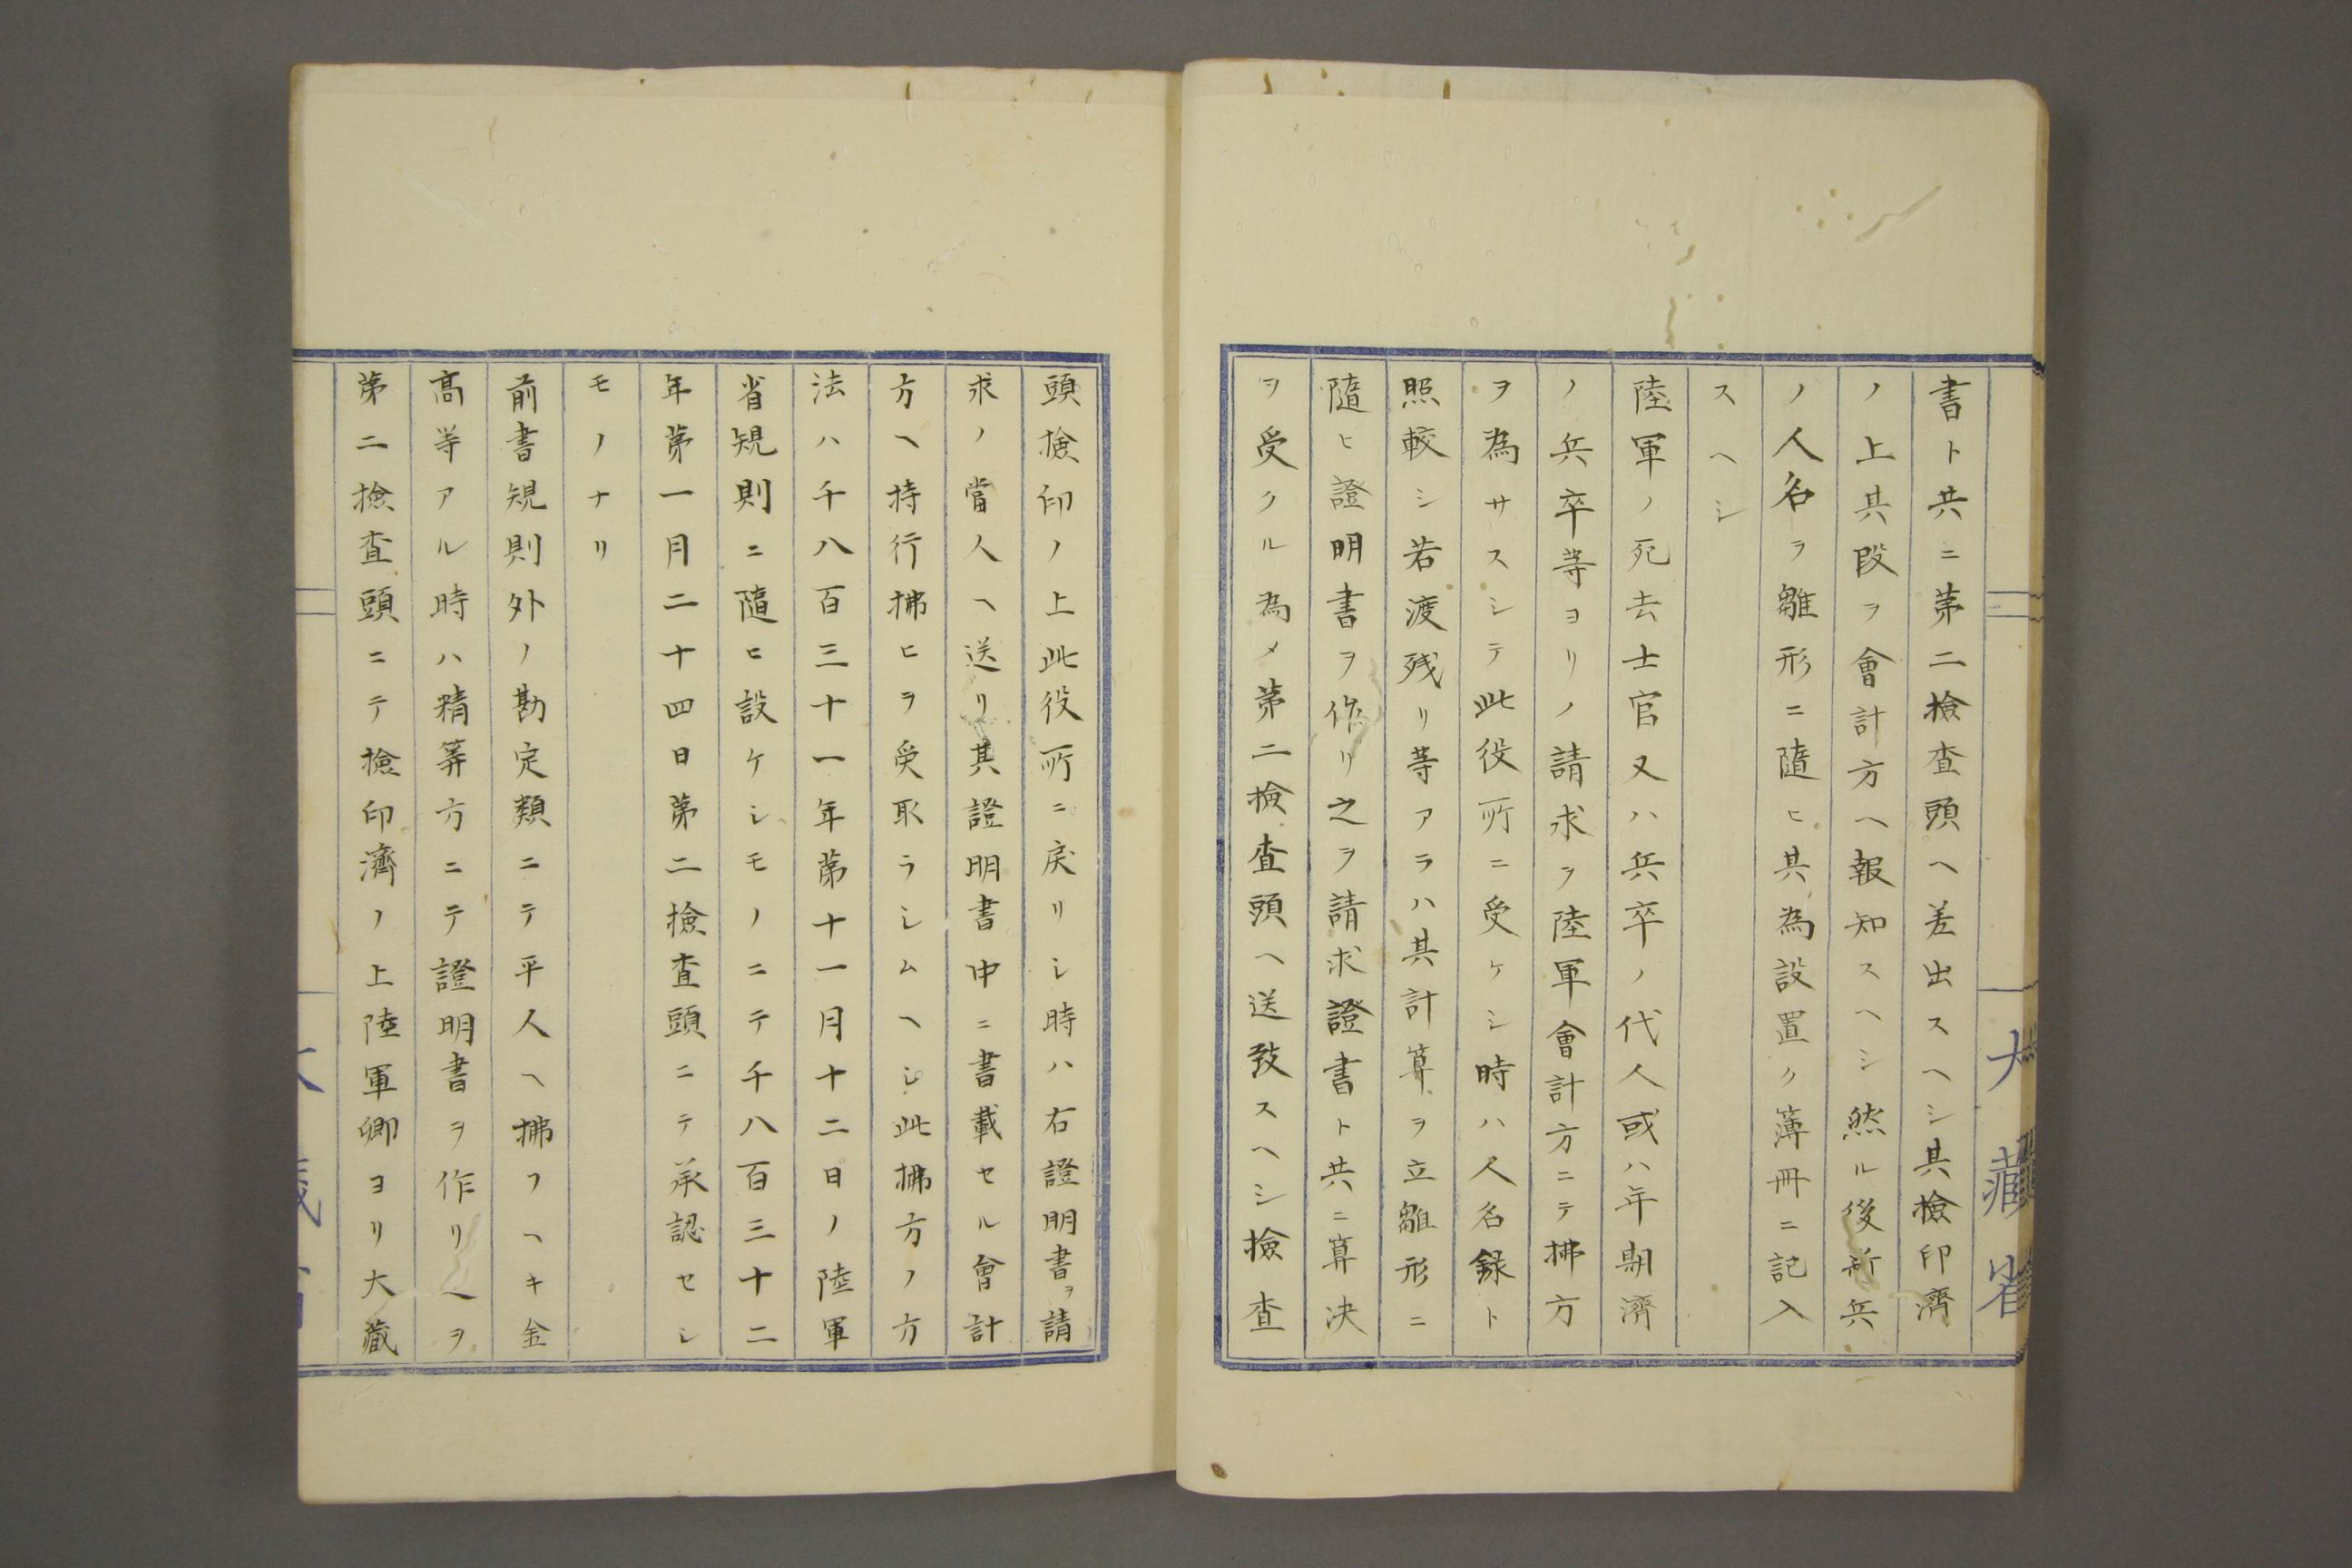 大藏省
書ト共ニ第二撿査頭ヘ差出スヘシ其撿印濟
ノ上其段ヲ會計方ヘ報知スヘシ然ル後新兵
ノ人名ヲ雛形ニ隨ヒ其為設置ク簿冊ニ記入
スヘシ
陸軍ノ死去士官又ハ兵卒ノ代人或ハ年期濟
ノ兵卒等ヨリノ請求ヲ陸軍會計方ニテ拂方
ヲ為サスシテ此役所ニ受ケシ時ハ人名録ト
照較シ若渡残リ等アラハ其計算ヲ立雛形ニ
隨ヒ證明書ヲ作リ之ヲ請求證書ト共ニ算决
ヲ受クル為メ第二撿査頭ヘ送致スヘシ撿査
頭撿印ノ上此役所ニ戻リシ時ハ右證明書ヲ請
求ノ當人ヘ送リ其證明書中ニ書載セル會計
方ヘ持行拂ヒヲ受取ラシムヘシ此拂方ノ方
法ハ千八百三十一年第十一月十二日ノ陸軍
省規則ニ隨ヒ設ケシモノニテ千八百三十二
年第一月二十四日第二撿査頭ニテ承認セシ
モノナリ
前書規則外ノ勘定類ニテ平人ヘ拂フヘキ金
高等アル時ハ精算方ニテ證明書ヲ作リ之ヲ
第二撿査頭ニテ撿印濟ノ上陸軍卿ヨリ大藏